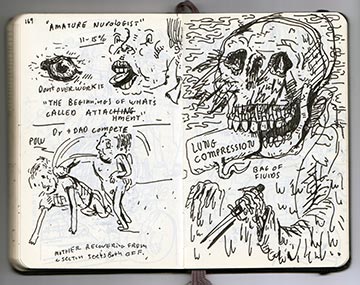 169
"AMATURE NUROLOGIST"
11-15%
DONT OVERWORK IS
"THE BEGINNINGS OF WHAT'S
CALLED ATTACHING
HMENT"
Dr + DAD COMPETE
POW
MOTHER RECOVERING FROM
SECTION SEE'S BOTH OFF,
LUNG
COMPRESSION
BAG OF
FLUIDS